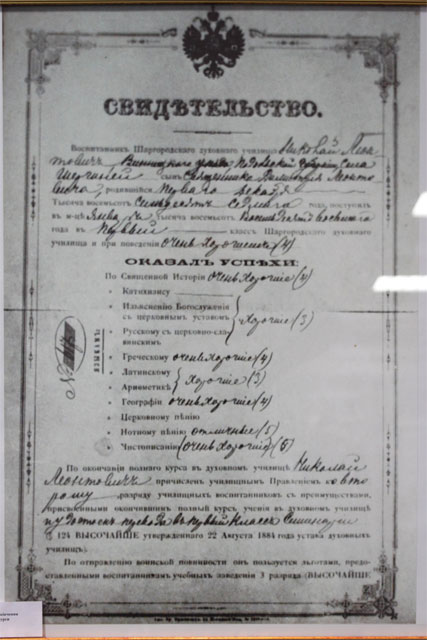 СВИДѢТЕЛЬСТВО.
Воспитанникъ Шаргородскаго духовнаго училища Николай Леон
товичъ Винницкаго уѣзда, Подольской губерніи села
сынъ Священника Леонто
вича родившійся перваго декабря
Тысяча восемьсотъ семьдесятъ седьмаго года, поступилъ
въ м-цѣ Тысяча восемьсотъ восемьдесятъ восьмаго
года въ первый классъ Шаргородскаго духовнаго
училища и при поведеніи очень хорошемъ (4)
ОКАЗАЛЪ УСПѢХИ:
По Священной Исторіи очень хорошіе (4)
" Катихизису
" Изъясненію Богослуженія
съ церковнымъ уставомъ хорошіе (3)
" Русскому съ церковно-сла-
вянскимъ
" Греческому очень хорошіе (4)
" Латинскому
" Ариѳметикѣ хорошіе (3)
" Географіи очень хорошіе (4)
" Церковному пѣнію
" Нотному пѣнію отличные (5)
" Чистописанію (очень хорошіе) (5)
По окончаніи полнаго курса въ духовномъ училищѣ Николай
Леонтовичъ причисленъ училищнымъ Правленіемъ ко вто
рому разряду училищныхъ воспитанниковъ съ преимуществами,
присвоенными окончившимъ полный курсъ ученія въ духовномъ училищѣ
и удостоенъ перевода въ первый классъ Семинаріи
124 ВЫСОЧАЙШЕ утвержденнаго 22 Августа 1884 года устава духовныхъ
училищъ).
По отправленію воинской повинности онъ пользуется льготами, предо-
ставленными воспитанникамъ учебныхъ заведеній 3 разряда (ВЫСОЧАЙШЕ